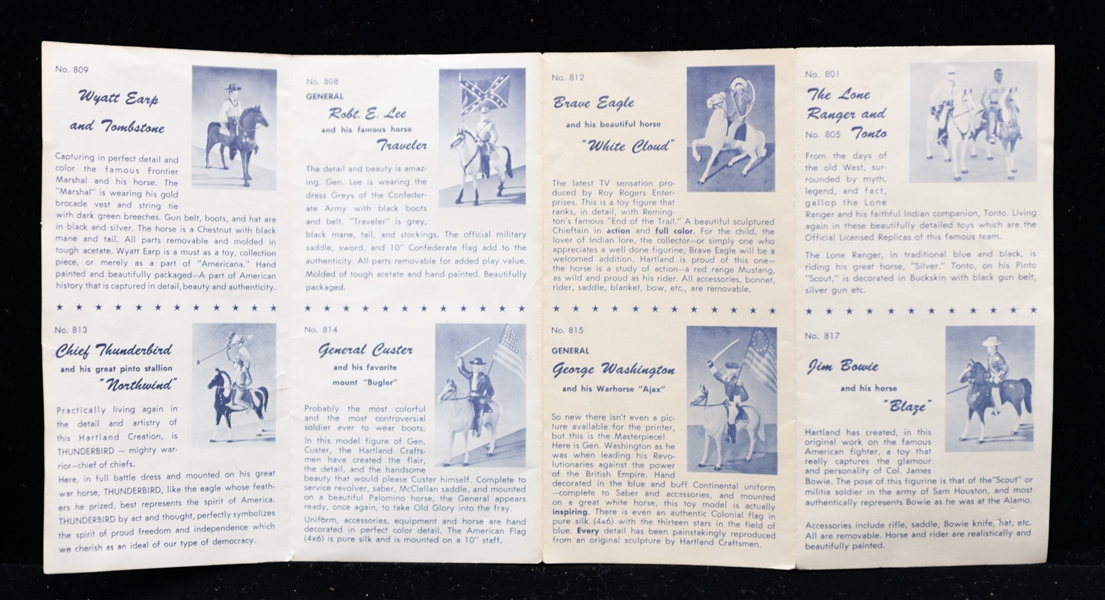 No. 809
Wyatt Earp
and Tombstone
Capturing in perfect detail and
color the famous Frontier
Marshal and his horse. The
"Marshal" is wearing his gold
brocade vest and string tie
with dark green breeches. Gun belt, boots, and hat are
in black and silver. The horse is a Chestnut with black
mane and tail. All parts removable and molded in
tough acetate. Wyatt Earp is a must as a toy, collection
piece, or merely as a part of "Americana." Hand
painted and beautifully packaged—A part of American
history that is captured in detail, beauty and authenticity.
No. 808
GENERAL
Robt. E. Lee
and his famous horse
Traveler
The detail and beauty is amaz-
ing. Gen. Lee is wearing the
dress Greys of the Confeder-
ate Army with black boots
and belt. "Traveler" is grey,
black mane, tail, and stockings. The official military
saddle, sword, and 10" Confederate flag add to the
authenticity. All parts removable for added play value.
Molded of tough acetate and hand painted. Beautifully
packaged.
No. 812
Brave Eagle
and his beautiful horse
"White Cloud"
The latest TV sensation pro-
duced by Roy Rogers Enter-
prises. This is a toy figure that
ranks, in detail, with Reming-
ton's famous "End of the Trail." A beautiful sculptured
Chieftain in action and full color. For the child, the
lover of Indian lore, the collector—or simply one who
appreciates a well done figurine, Brave Eagle will be a
welcomed addition. Hartland is proud of this one—
the horse is a study of action—a red range Mustang,
as wild and proud as his rider. All accessories, bonnet,
rider, saddle, blanket, bow, etc., are removable.
No. 801
The Lone
Ranger and
No. 805 Tonto
From the days of
the old West, sur-
rounded by myth,
legend, and fact,
gallop the Lone
Ranger and his faithful Indian companion, Tonto. Living
again in these beautifully detailed toys which are the
Official Licensed Replicas of this famous team.
The Lone Ranger, in traditional blue and black, is
riding his great horse, "Silver." Tonto, on his Pinto
"Scout," is decorated in Buckskin with black gun belt,
silver gun etc.
No. 813
Chief Thunderbird
and his great pinto stallion
"Northwind"
Practically living again in
the detail and artistry of
this Hartland Creation, is
THUNDERBIRD — mighty war-
rior—chief of chiefs.
Here, in full battle dress and mounted on his great
war horse, THUNDERBIRD, like the eagle whose feath-
ers he prized, best represents the spirit of America.
THUNDERBIRD by act and thought, perfectly symbolizes
the spirit of proud freedom and independence which
we cherish as an ideal of our type of democracy.
No. 814
General Custer
and his favorite
mount "Bugler"
Probably the most colorful
and the most controversial
soldier ever to wear boots;
In this model figure of Gen.
Custer, the Hartland Crafts-
men have created the flair,
the detail, and the handsome
beauty that would please Custer himself. Complete to
service revolver, saber, McClellan saddle, and mounted
on a beautiful Palomino horse, the General appears
ready, once again, to take Old Glory into the fray.
Uniform, accessories, equipment and horse are hand
decorated in perfect color detail. The American Flag
(4x6) is pure silk and is mounted on a 10" staff.
No. 815
GENERAL
George Washington
and his Warhorse "Ajax"
So new there isn't even a pic-
ture available for the printer,
but this is the Masterpiece!
Here is Gen. Washington as he
was when leading his Revo-
lutionaries against the power
of the British Empire. Hand
decorated in the blue and buff Continental uniform
—complete to Saber and accessories, and mounted
on a great white horse, this toy model is actually
inspiring. There is even an authentic Colonial flag in
pure silk (4x6) with the thirteen stars in the field of
blue. Every detail has been painstakingly reproduced
from an original sculpture by Hartland Craftsmen.
No. 817
Jim Bowie
and his horse
"Blaze"
Hartland has created, in this
original work on the famous
American fighter, a toy that
really captures the glamour
and personality of Col. James
Bowie. The pose of this figurine is that of the "Scout" or
militia soldier in the army of Sam Houston, and most
authentically represents Bowie as he was at the Alamo.
Accessories include rifle, saddle, Bowie knife, hat, etc.
All are removable. Horse and rider are realistically and
beautifully painted.